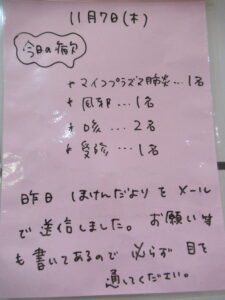 11月7日(木)
今日の病欠
* マイコプラズマ肺炎…1名
* 風邪…1名
* 咳…2名
* 受診…1名
昨日 ほけんだよりをメール
で送信しました。お願い等
も書いてあるので必らず目を
通してください。